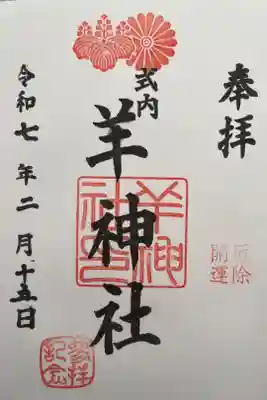 奉拝
式内
羊神社
羊神社之印
厄除
開運
令和七年二月十五日
参拝
記念